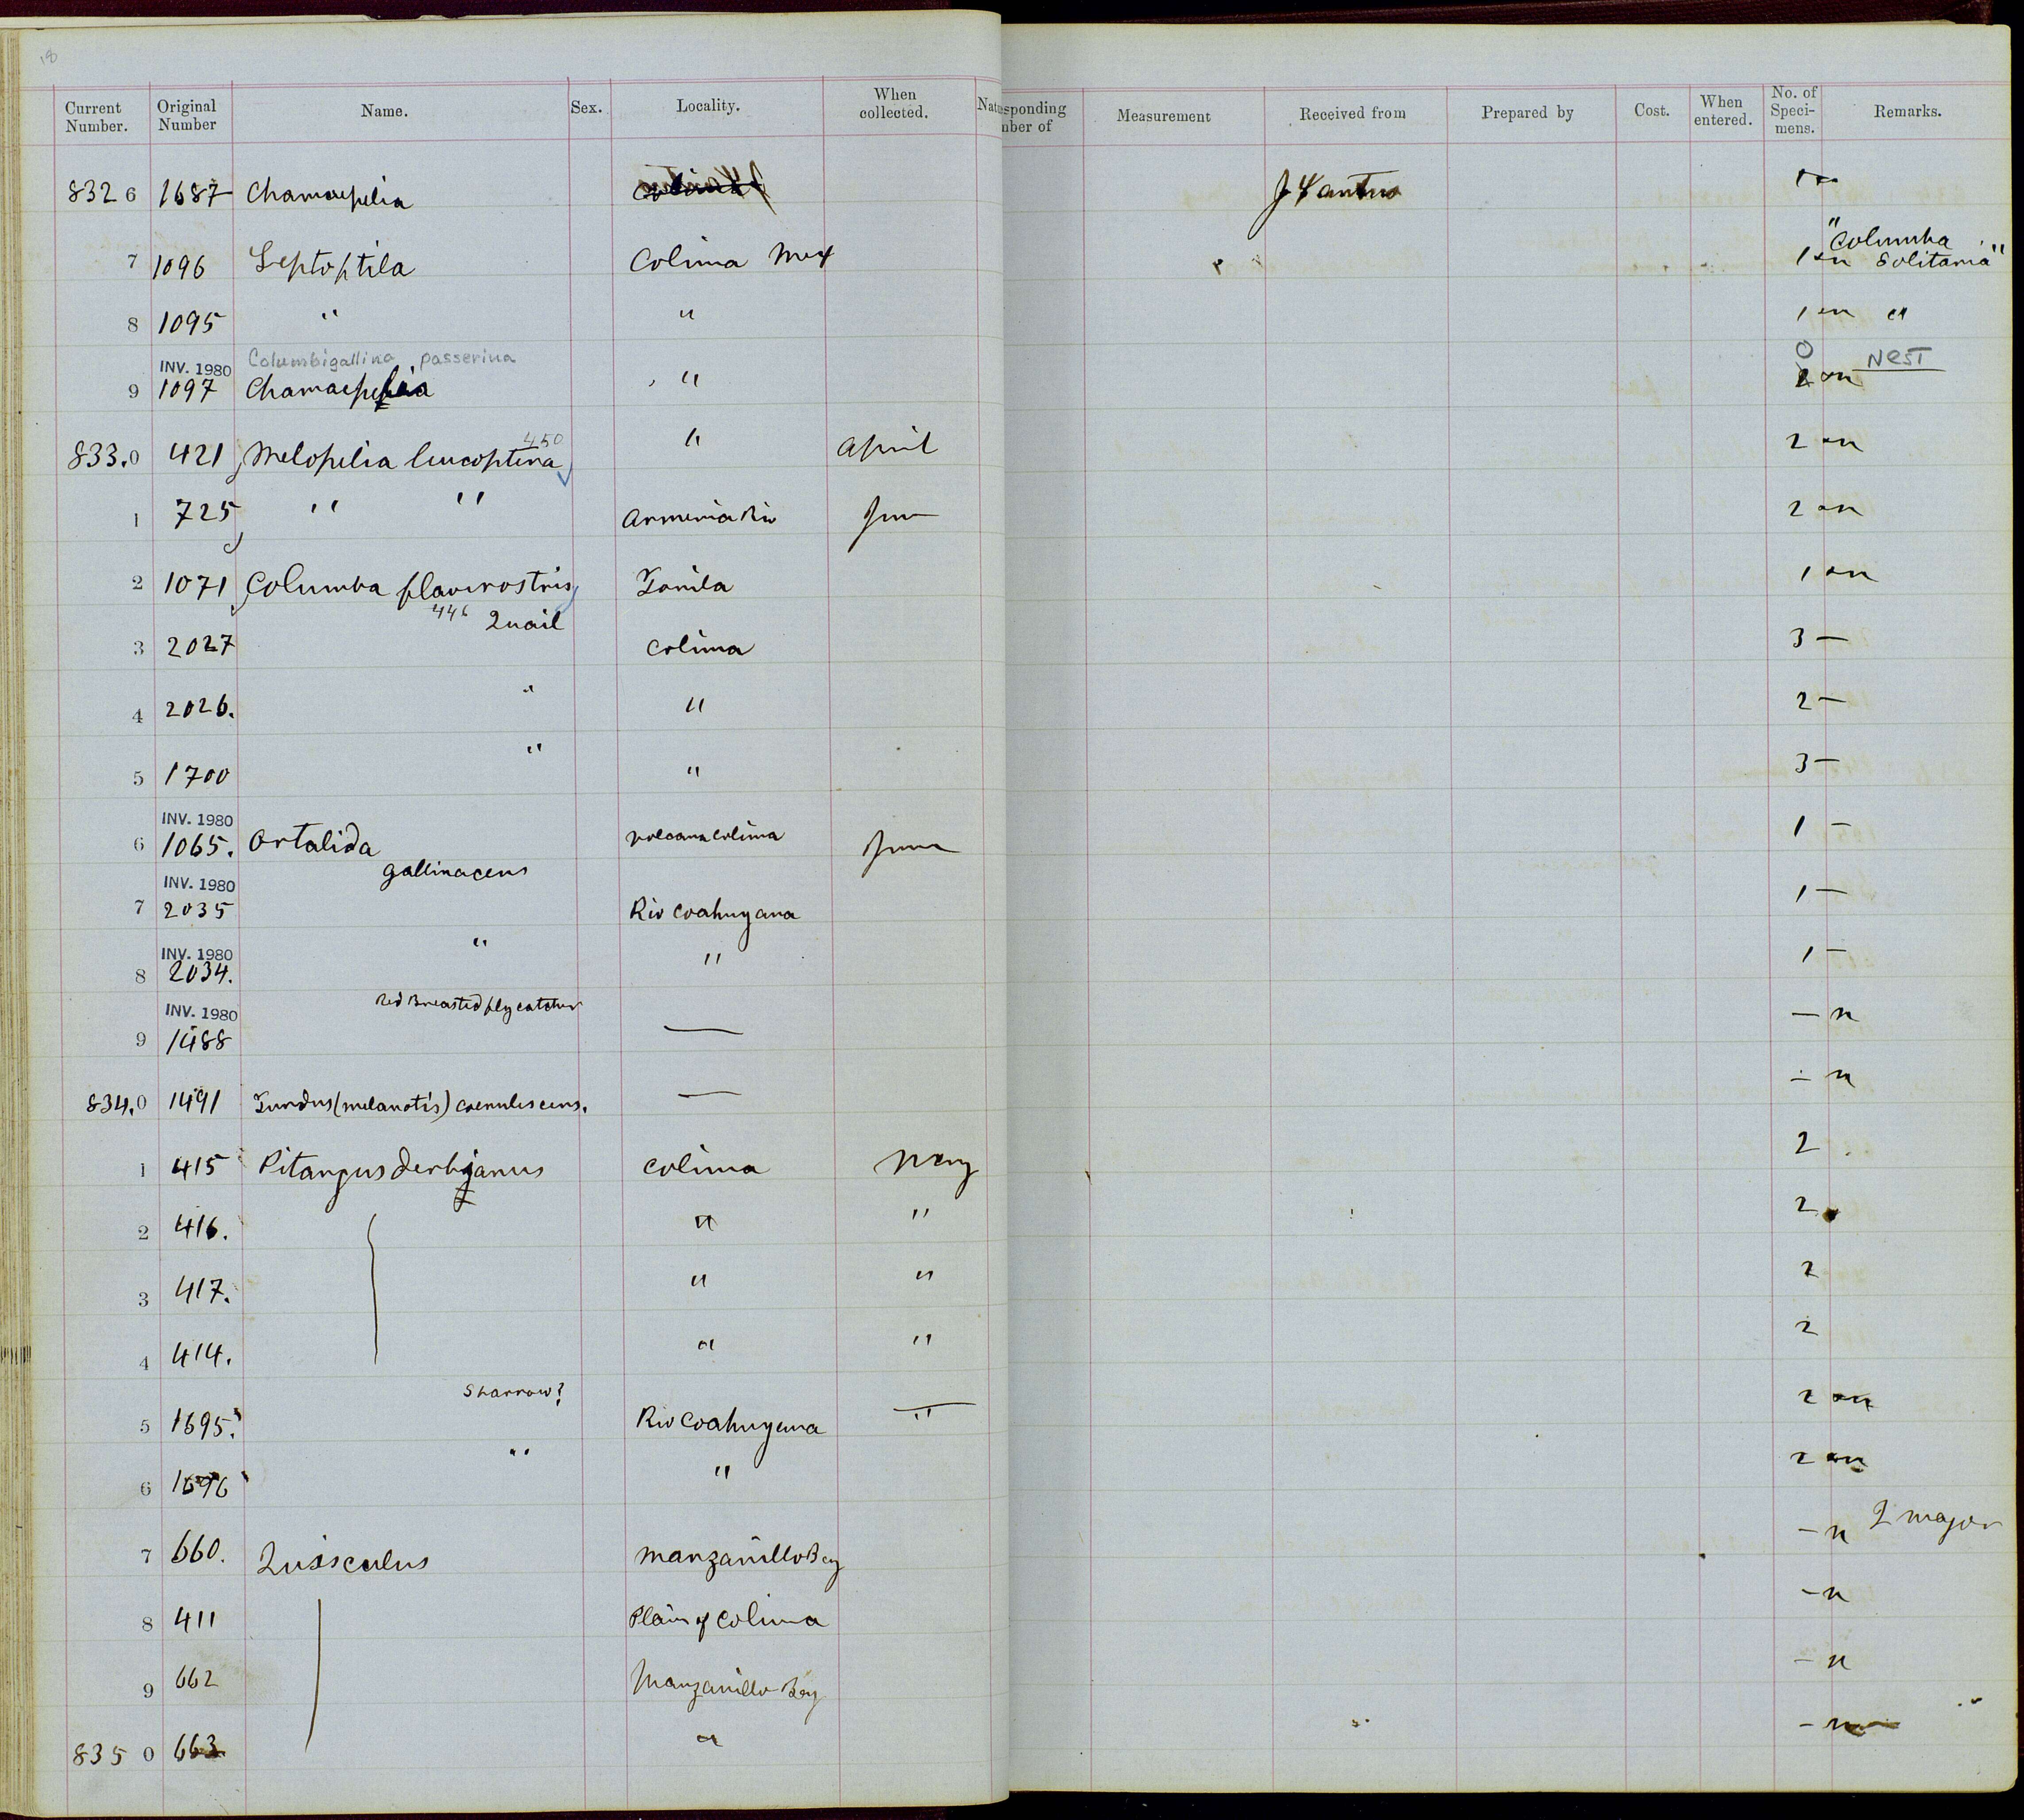 18
Current Number. Original Number Name. Sex. Locality. When collected. Nat esponding nber of Measurement Received from Prepared by Cost. When entered. No. of Speci- mens. Remarks.
832 6 1687 Chamaepelia Colima J Xantus 1 on
7 1096 Leptoptila Colima Mex 1 on "Columba Solitaria"
8 1095 " " 1 on "
INV. 1980 Columbigallina passerina 0 NEST
9 1097 Chamaepelia " on
450
833.0 421 Melopelia leucoptera " April 2 on
1 725 " " Armeria Rio June 2 on
2 1071 Columba flavirostris Tonila 1 on
446 Quail
3 2027 Colima 3 —
4 2026. " " 2 —
5 1700 " " 3 —
INV. 1980
6 1065. Ortalida volcano Colima June 1 —
gallinaceus
INV. 1980
7 2035 Rio Coahuyana 1 —
INV. 1980
8 2034. " " 1 —
INV. 1980 red Breasted fly catcher
9 1488 — — n
834.0 1491 Turdus (melanotis) coerulescens. — — n
1 415 Pitangus derbyanus Colima May 2
2 416. " " 2
3 417. " " 2
4 414. " " 2
Sparrow?
5 1695. Rio Coahuyana " 2 on
6 1696 " " 2 on
7 660. Quiscalus Manzanillo Bay — n Q major
8 411 Plain of Colima — n
9 662 Manzanillo Bay — n
835 0 663 " — n